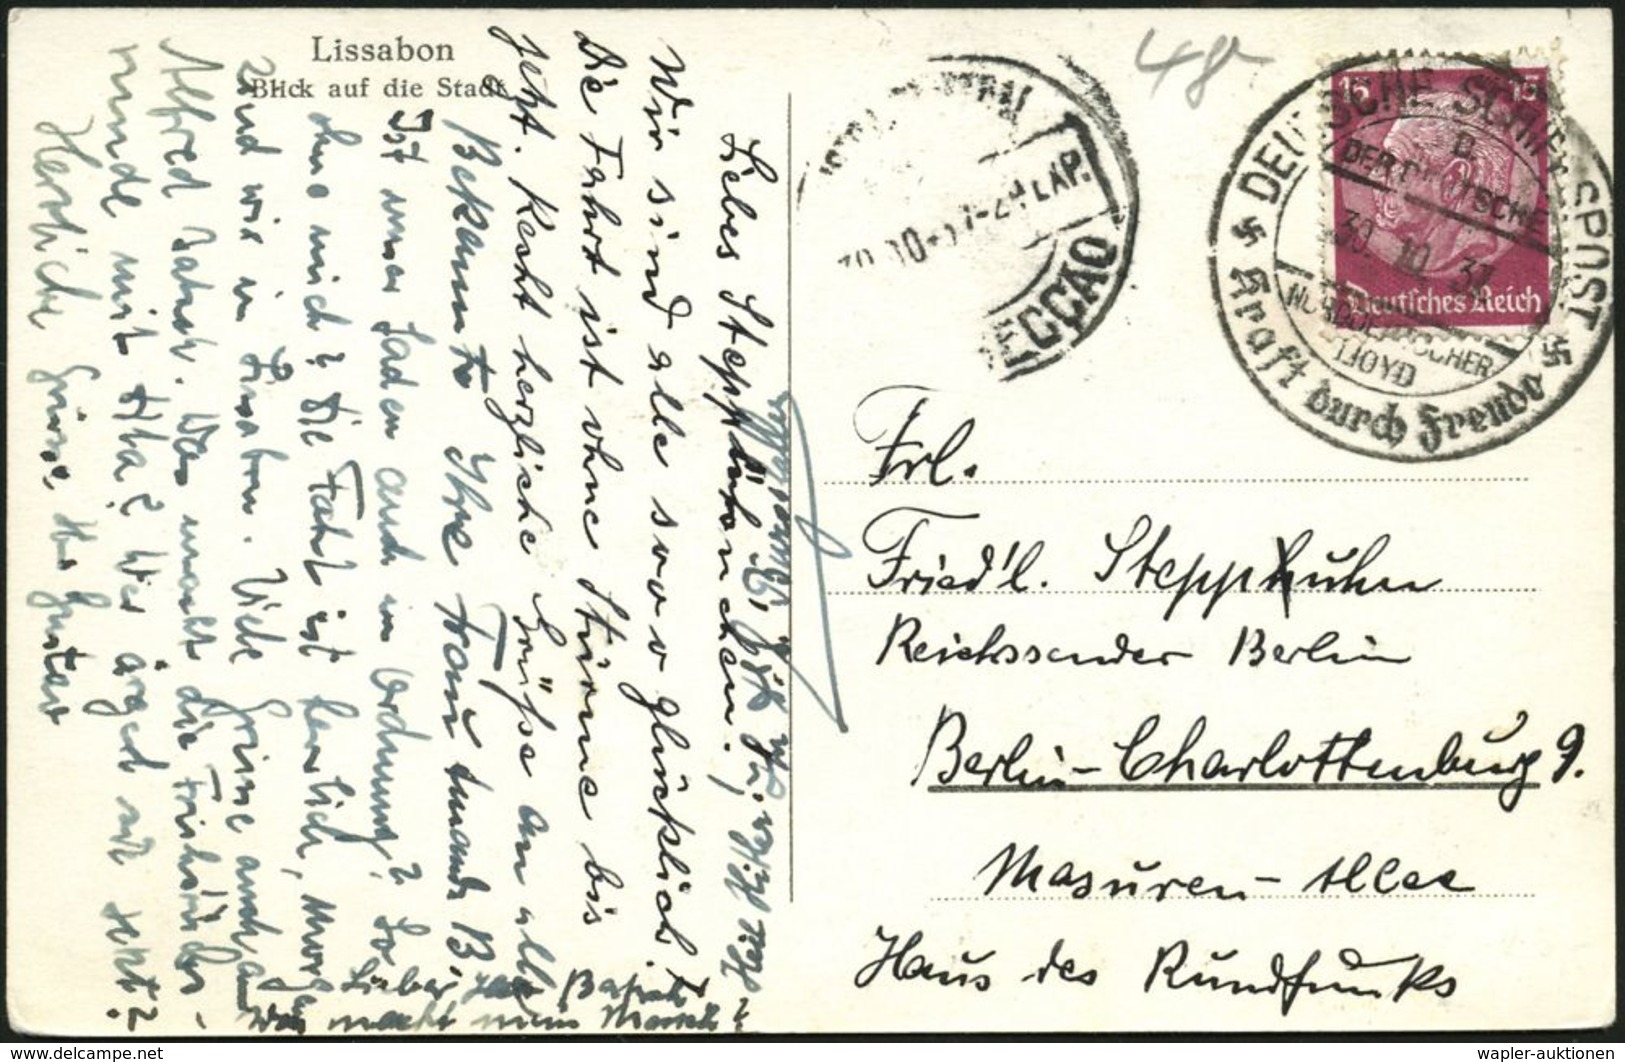 Lissabon
Blick auf die Stadt
Liebes Stepphühnchen!
Wir sind alle sooo glücklich!
Die Fahrt ist ohne Stürme bis
jetzt. Recht herzliche Grüße an alle
Bekannte Ihre Traute B.
Ist unser Laden auch in Ordnung? So
ohne mich? Die Fahrt ist herrlich, morgen
sind wir in Lissabon. Viele Grüsse auch an
Alfred Was macht die
mit Wer ärgert sie jetzt?
Herzliche Grüsse, Ihr Gustav
Lieber
Was macht mein
48
CENTRAL
30 10-37-24 LAP.
ECÇÃO
15 15
Deutsches Reich
DEUTSCHE SCHIFFSPOST
D.
DER DEUTSCHE
30. 10. 37
NORDDEUTSCHER
LLOYD
Kraft durch Freude
Frl.
Fried'l. Stepphuhn
Reichssender Berlin
Berlin-Charlottenburg 9.
Masuren-Allee
Haus des Rundfunks
wapler-auktionen
www.delcampe.net